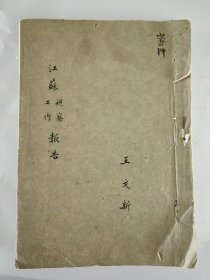 密件
江蘇視察工作報告
王文新